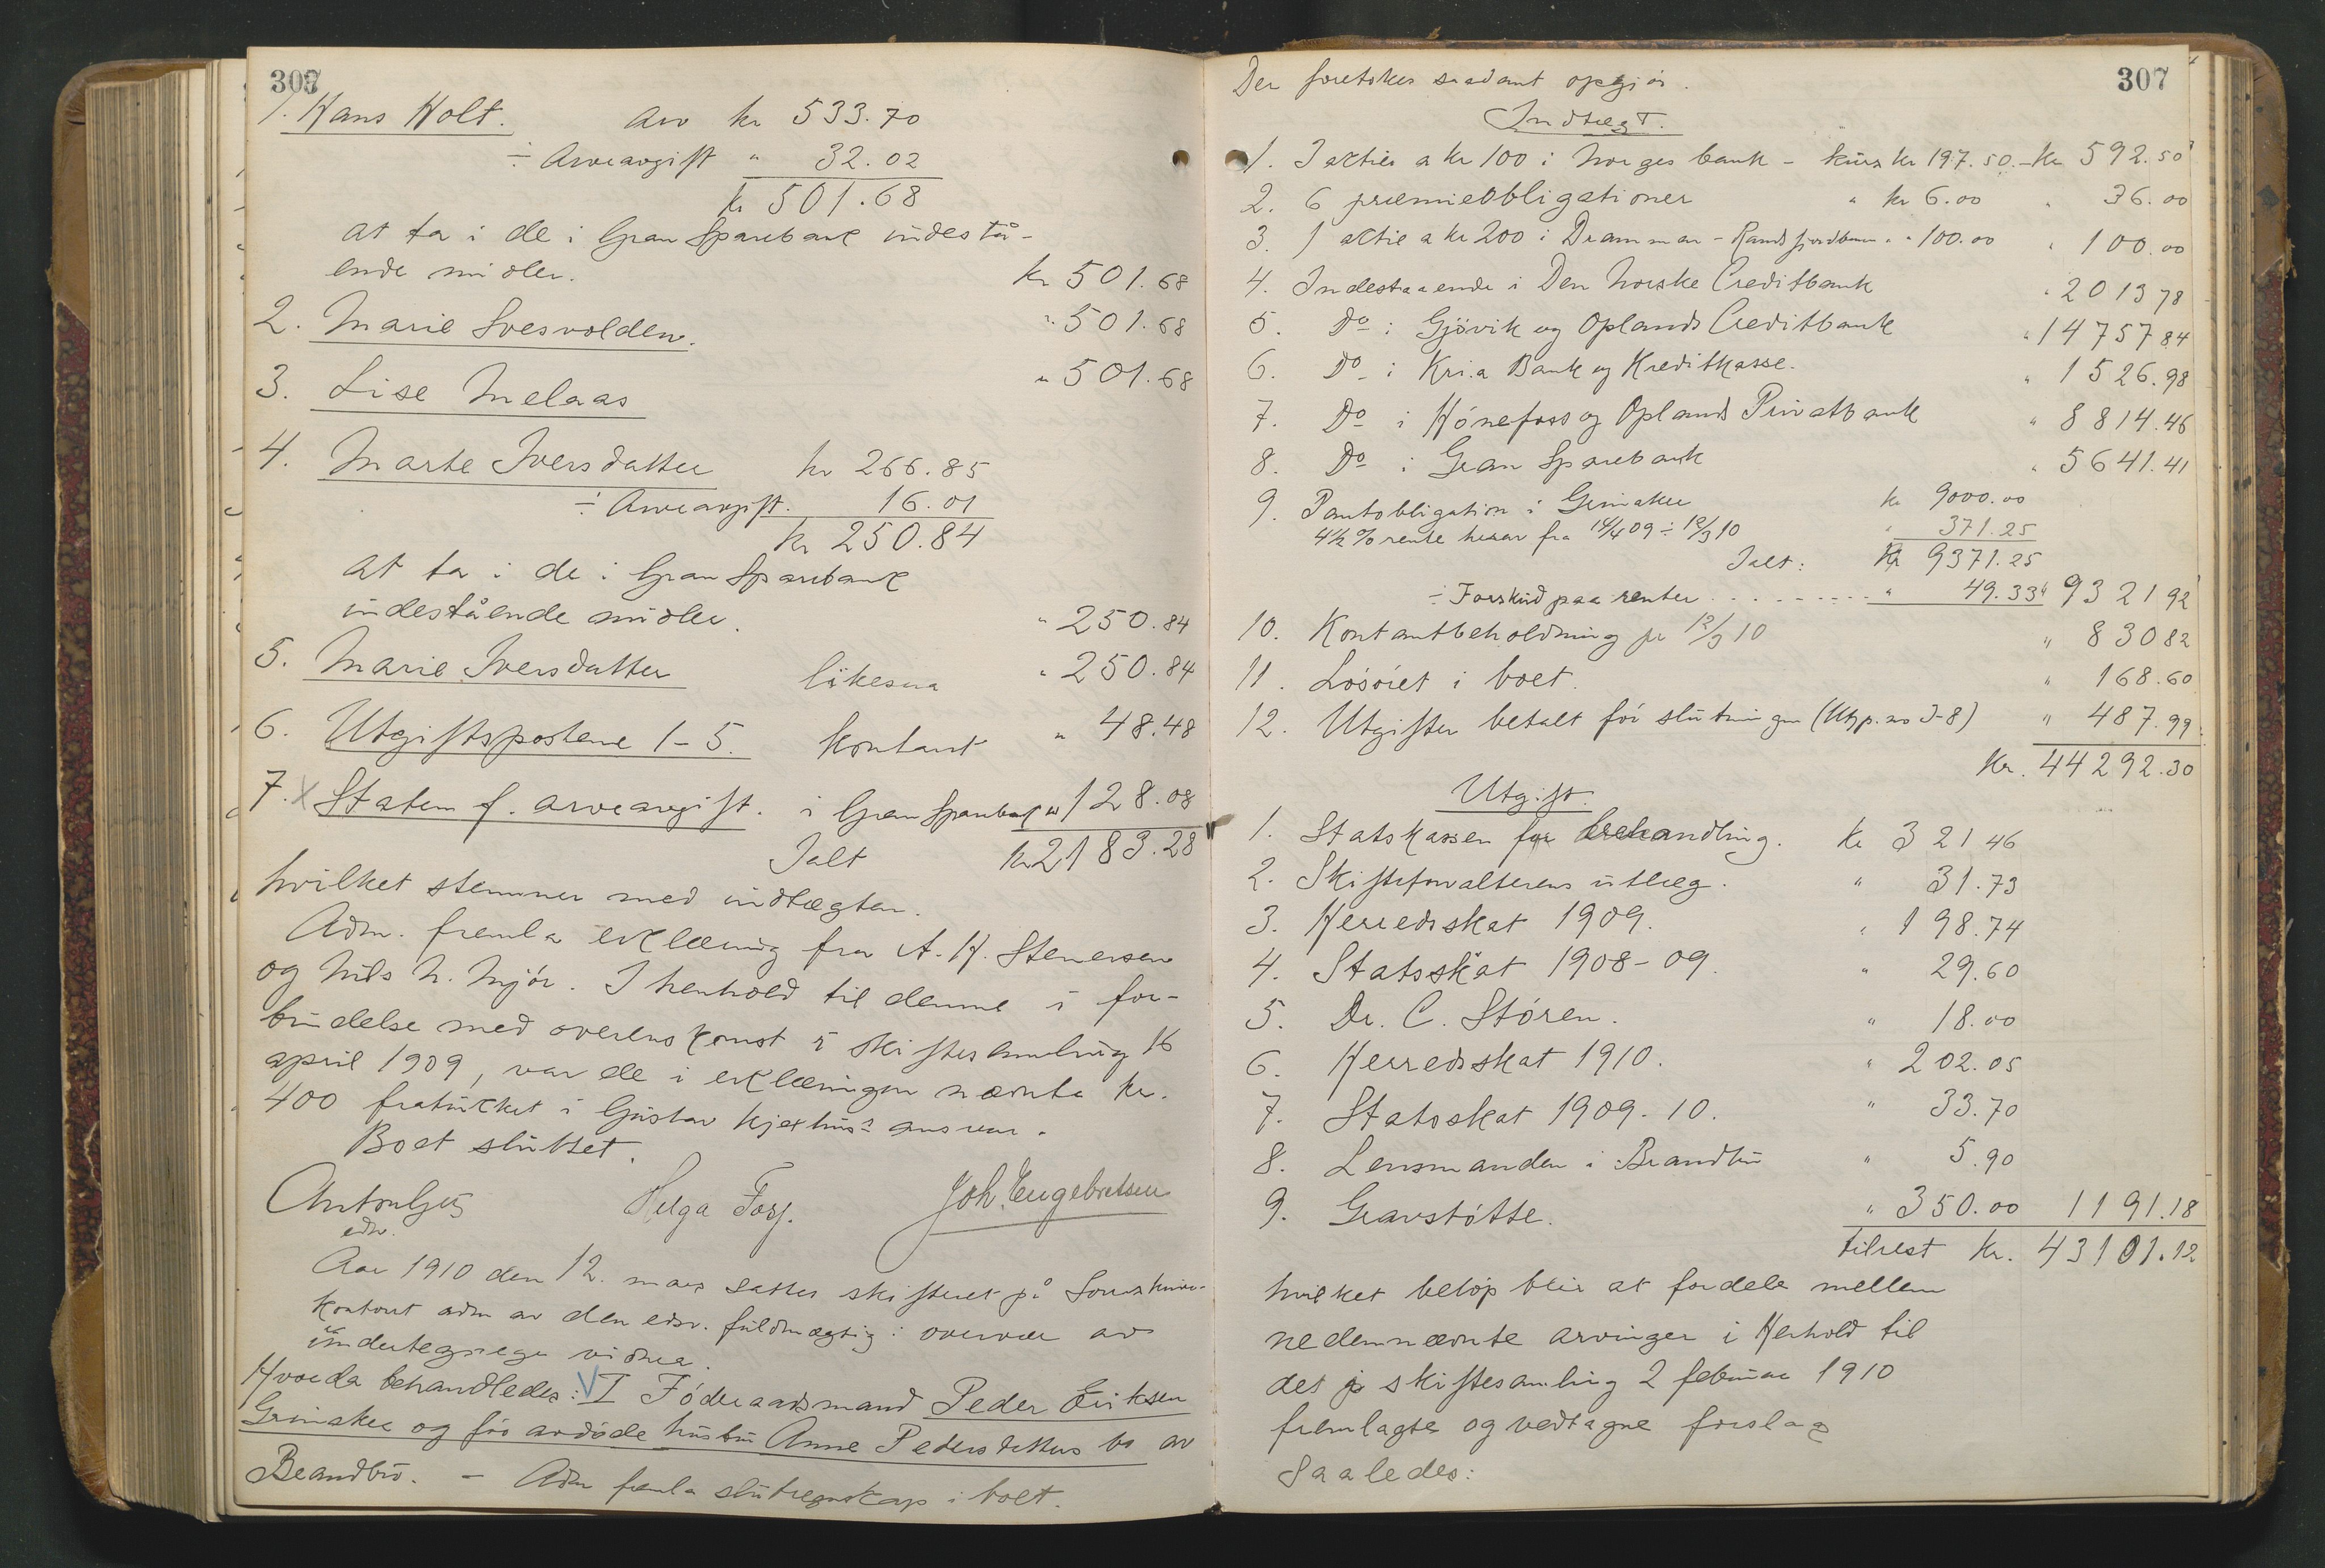 1. Hans Holt. Arv kr 533.70
÷ Arveavgift " 32.02
kr 501.68
at ta i de i Gran Sparebank indestå-
ende midler. kr 501.68
2. Marie Svesvolden. " 501.68
3. Lise Melaas " 501.68
4. Marte Iversdatter kr 266.85
÷ Arveavgift. 16.01
kr 250.84
at ta i de i Gran Sparebank
indestående midler. " 250.84
5. Marie Iversdatter likesaa " 250.84
6. Utgiftspostene 1-5. kontant " 48.48
7. x Staten f. arveavgift. i Gran Sparebank " 128.08
Ialt kr 2183.28
hvilket stemmer med indtægten.
Adm. fremla erklæring fra A. H. Stenersen
og Nils N. Mjör. I henhold til denne i for-
bindelse med overenskomst i skiftesamling 16
april 1909, var de i erklæringen nævnte kr.
400 fratrukket i Gustav Kjexhus's ansvar.
Boet sluttet.
Helga Fors. Joh. Engebretsen
edsv.
Aar 1910 den 12. mars sattes skifteret på Sorenskriver-
kontoret adm av den edsv. fuldmægtig i overvær av
undertegnede vidner.
Hvorda behandledes: V I Föderaadsmand Peder Eriksen
Grinaker og før avdöde hustru Anne Pedersdatters bo av
Brandbu. - Adm fremla slutregnskap i boet.
307
Der foretokes saadant opgjör.
Indtægt.
1. 3 aktier a kr 100 i Norges bank - kurs kr 197.50 - kr 592.50
2. 6 præmieobligationer " kr 6.00 " 36.00
3. 1 aktie a kr 200 i Drammen - Randsfjordbanen " " 100.00 " 100.00
4. Indestaaende i Den Norske Creditbank " 2013 78
5. Do i Gjövik og Oplands Creditbank " 14757 84
6. Do i Kri.a Bank og Kreditkasse. " 1526.98
7. Do i Hönefoss og Oplands Privatbank " 8814.46
8. Do i Gran Sparebank " 5641.41
9. Pantobligation i Grinaker kr 9000.00
4½ % rente herav fra 14/4 09 ÷ 12/3 10 " 371.25
Ialt: Kr 9371.25
÷ Forskud paa renter . . . . . . . . . " 49.33 " 9321 92
10. Kontantbeholdning pr 12/3 10 " 830 82
11. Lösöret i boet. " 168.60
12. Utgifter betalt för slutningen (Utgp. no 3-8) " 487.99
Kr. 44292.30
Utgift.
1. Statskassen for behandling. kr 321 46
2. Skifteforvalterens utlæg. " 31.73
3. Herredsskat 1909. " 198.74
4. Statsskat 1908-09. " 29.60
5. Dr. C. Stören. " 18.00
6. Herredsskat 1910. " 202.05
7. Statsskat 1909-10. " 33.70
8. Lensmanden i Brandbu " 5.90
9. Gravstötte. " 350.00 1191.18
tilrest kr. 43101.12
hvilket belöp blir at fordele mellem
nedennævnte arvinger i Henhold til
det på skiftesamling 2 februar 1910
fremlagte og vedtagne forslag
saaledes: